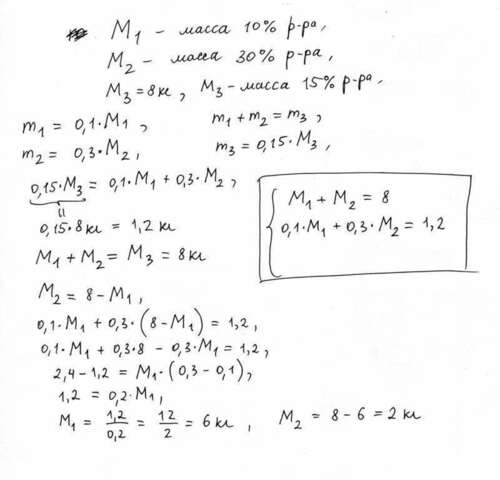 M₁ – масса 10% р-ра,
M₂ – масса 30% р-ра,
M₃ = 8кг, M₃ – масса 15% р-ра,
m₁ = 0,1·M₁, m₁ + m₂ = m₃,
m₂ = 0,3·M₂, m₃ = 0,15·M₃,
0,15·M₃ = 0,1·M₁ + 0,3·M₂,
0,15·8кг = 1,2 кг
{ M₁ + M₂ = 8
0,1·M₁ + 0,3·M₂ = 1,2
M₁ + M₂ = M₃ = 8кг
M₂ = 8 – M₁,
0,1·M₁ + 0,3·(8 – M₁) = 1,2,
0,1·M₁ + 0,3·8 – 0,3·M₁ = 1,2,
2,4 – 1,2 = M₁·(0,3 – 0,1),
1,2 = 0,2·M₁,
M₁ = 1,2/0,2 = 12/2 = 6 кг, M₂ = 8 – 6 = 2 кг